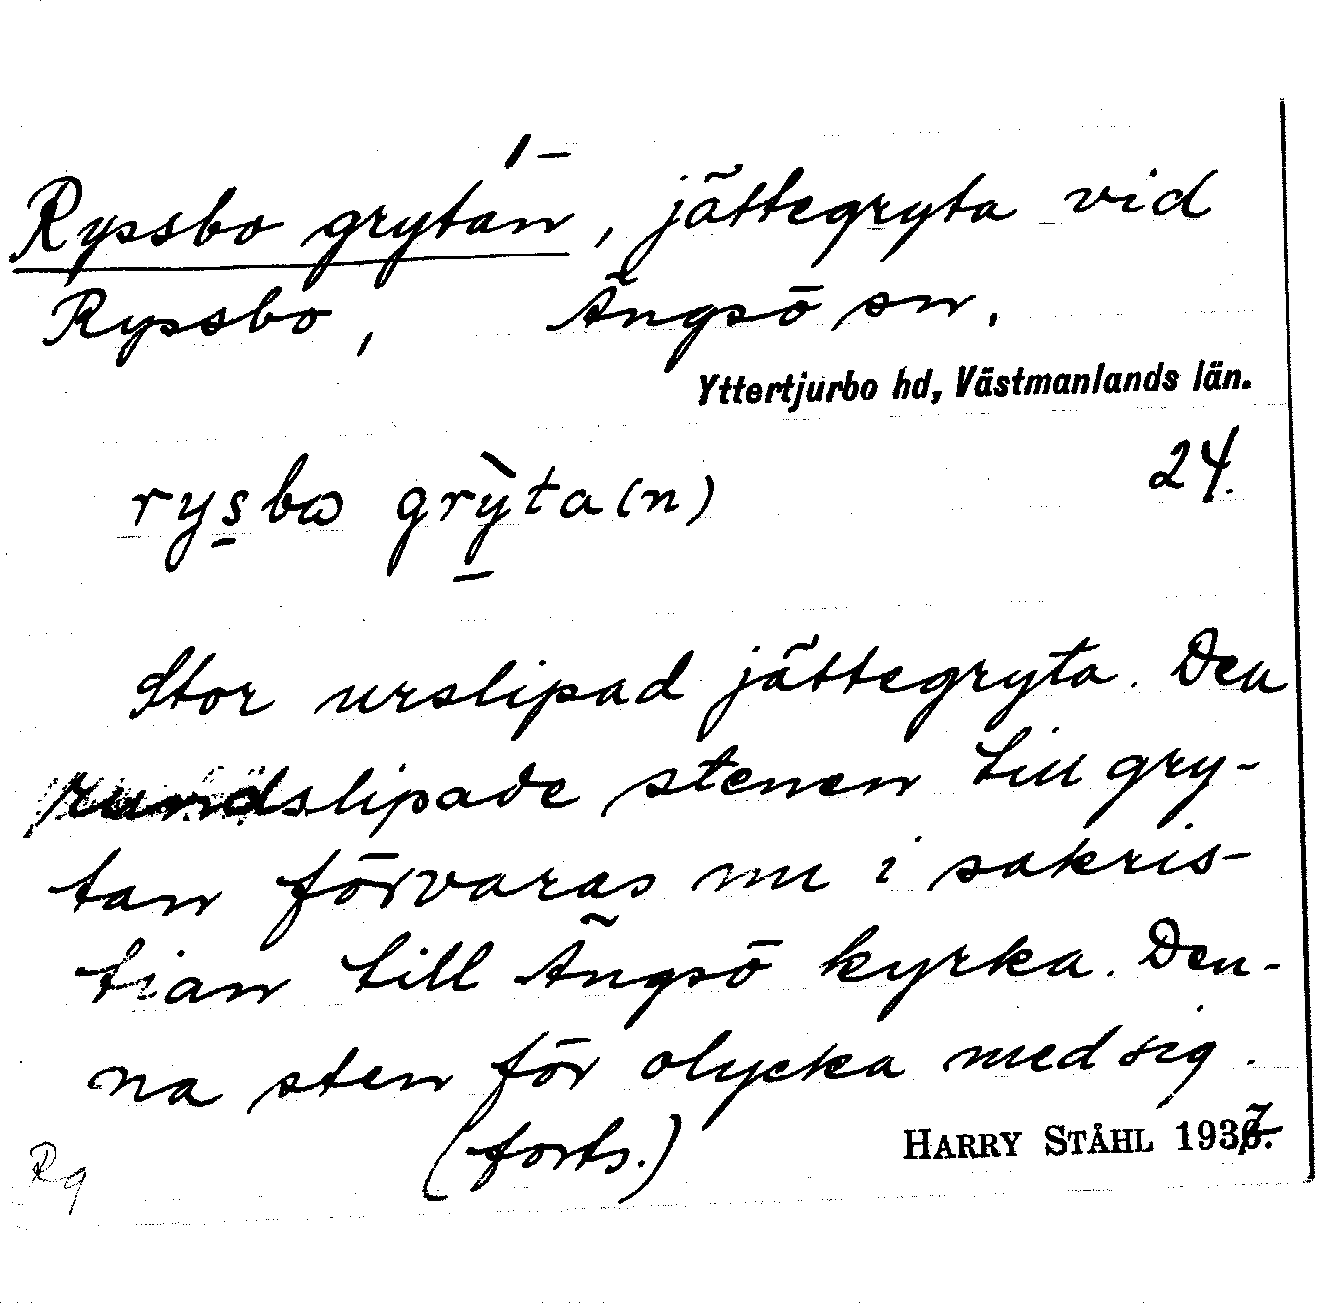 Ryssbo grytan, jättegryta vid
Ryssbo, Ängsö sn.
Yttertjurbo hd, Västmanlands län.
rysbω grỳta(n) 24.
Stor urslipad jättegryta. Den
rundslipade stenen till gry-
tan förvaras nu i sakris-
tian till Ängsö kyrka. Den-
na sten för olycka med sig.
(forts.)
HARRY STÅHL 1937.
Rq